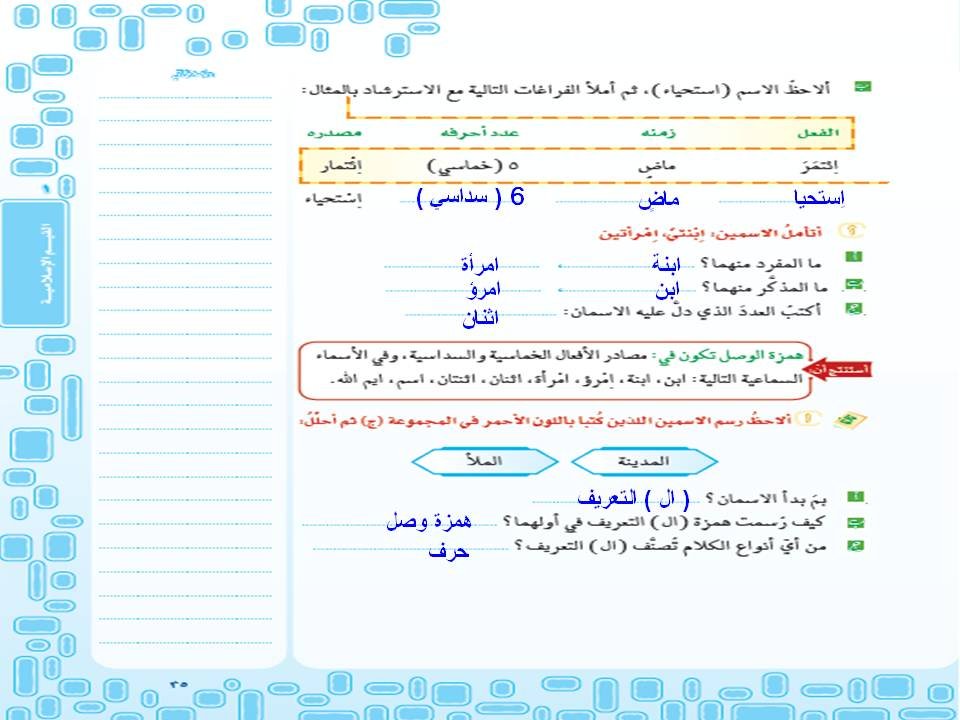 ألاحظُ الاسم (استحياء)، ثم أملأ الفراغات التالية مع الاسترشاد بالمثال:
الفعل زمنه عدد أحرفه مصدره
اِئتمَرَ ماضٍ ٥ (خماسي) اِئْتمار
اِستحيا ماضٍ 6 ( سداسي ) اِسْتحياء
أتأملُ الاسمين: اِبْنتيْ، اِمْرأتين
أ ما المفرد منهما؟ ابنة امرأة
ب ما المذكَّر منهما؟ ابن امرؤ
ج أكتبُ العددَ الذي دلَّ عليه الاسمان: اثنان
أستنتج أن:
همزة الوصل تكون في: مصادر الأفعال الخماسية والسداسية، وفي الأسماء
السماعية التالية: ابن، ابنة، اِمْرؤ، امْرأة، اثنان، اثنتان، اسم، ايم الله.
ألاحظُ رسم الاسمين اللذين كُتبا باللون الأحمر في المجموعة (ج) ثم أحلّلُ:
المدينة الملأ
أ بمَ بدأ الاسمان؟ ( ال ) التعريف
ب كيف رُسمت همزة (ال) التعريف في أولهما؟ همزة وصل
ج من أيّ أنواع الكلام تُصنَّف (ال) التعريف؟ حرف
القيم الإسلامية
٣٥